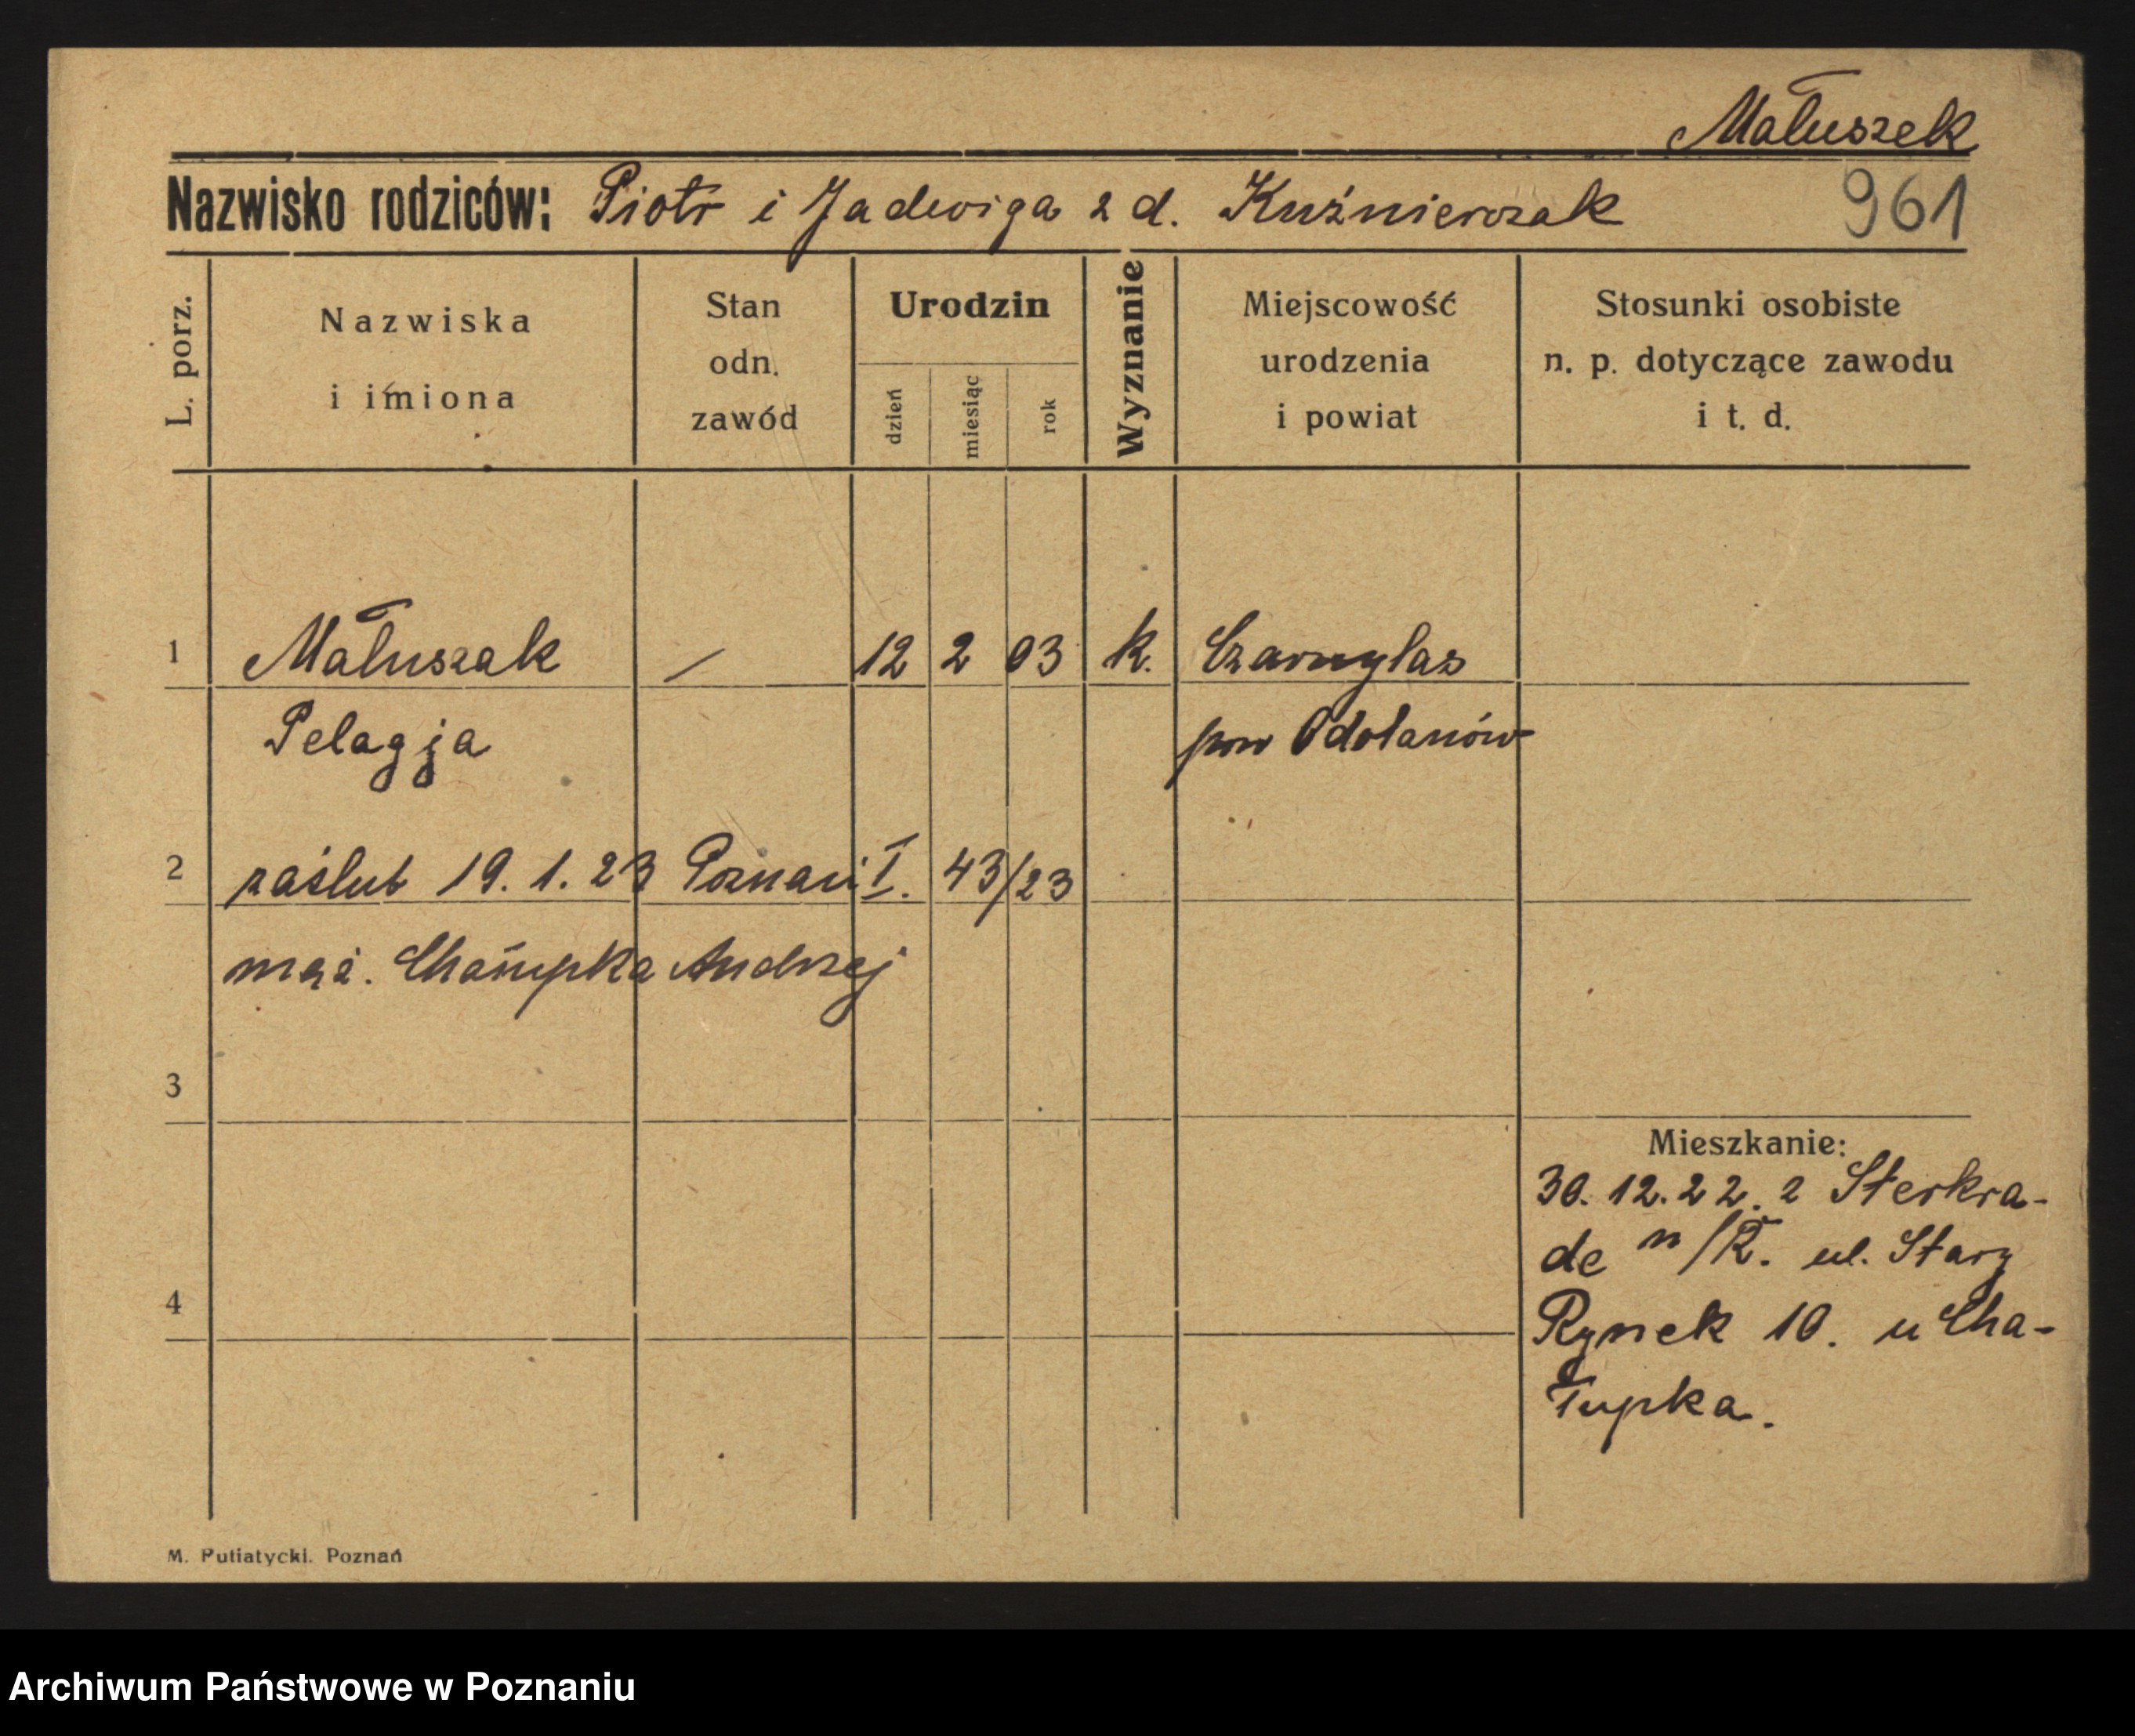 Małuszek
Nazwisko rodziców: Piotr i Jadwiga z d. Kuźnierczak
961
L. porz.
Nazwiska
i imiona
Stan
odn.
zawód
Urodzin
dzień
miesiąc
rok
Wyznanie
Miejscowość
urodzenia
i powiat
Stosunki osobiste
n. p. dotyczące zawodu
i t. d.
1 Małuszak / 12 2 03 k. Czarnylas
Pelagja pow Odolanów
2 zaślub 19. 1. 23 Poznań I. 43/23
mąż. Chałupka Andrzej
3
Mieszkanie:
30. 12. 22. z Sterkra-
de n/R. ul. Stary
4
Rynek 10. u Cha-
łupka.
M. Putiatycki. Poznań
Archiwum Państwowe w Poznaniu